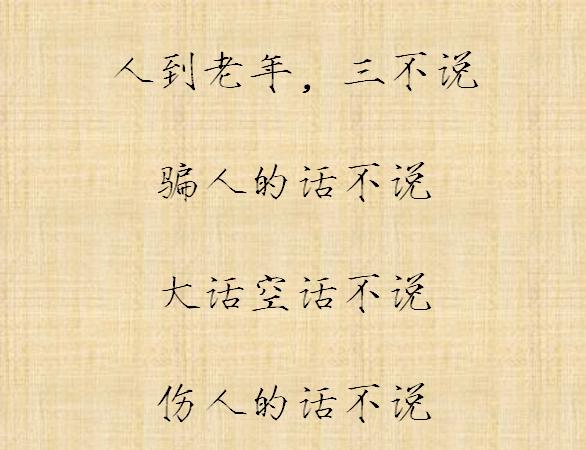 人到老年，三不说
骗人的话不说
大话空话不说
伤人的话不说